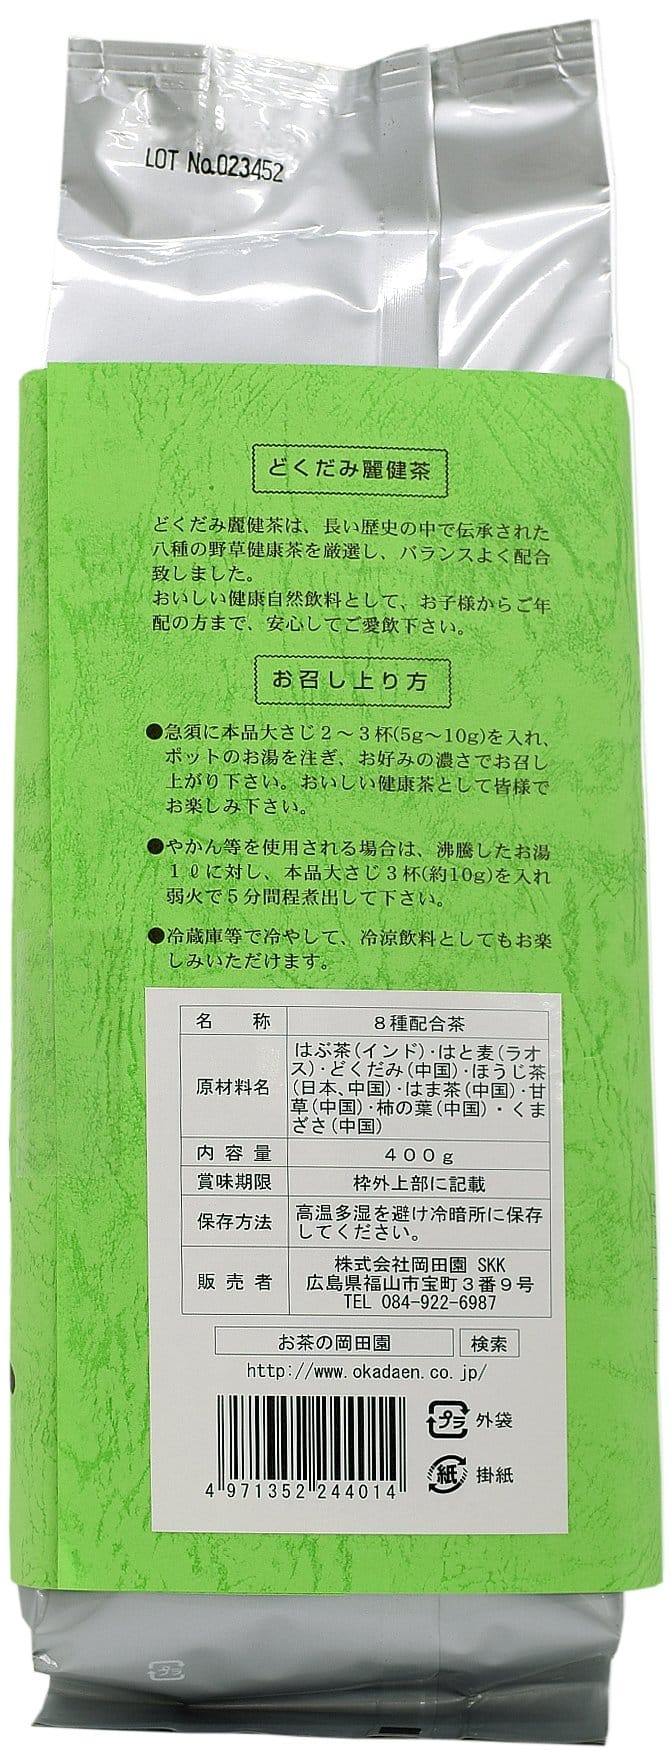 LOT No.023452
どくだみ麗健茶
どくだみ麗健茶は、長い歴史の中で伝承された
八種の野草健康茶を厳選し、バランスよく配合
致しました。
おいしい健康自然飲料として、お子様からご年
配の方まで、安心してご愛飲下さい。
お召し上り方
●急須に本品大さじ2～3杯(5g～10g)を入れ、
ポットのお湯を注ぎ、お好みの濃さでお召し
上がり下さい。おいしい健康茶として皆様で
お楽しみ下さい。
●やかん等を使用される場合は、沸騰したお湯
1ℓに対し、本品大さじ3杯(約10g)を入れ
弱火で5分間程煮出して下さい。
●冷蔵庫等で冷やして、冷涼飲料としてもお楽
しみいただけます。
名 称 8種配合茶
原材料名 はぶ茶(インド)・はと麦(ラオ
ス)・どくだみ(中国)・ほうじ茶
(日本、中国)・はま茶(中国)・甘
草(中国)・柿の葉(中国)・くま
ざさ(中国)
内容量 400g
賞味期限 枠外上部に記載
保存方法 高温多湿を避け冷暗所に保存
してください。
販売者 株式会社岡田園 SKK
広島県福山市宝町3番9号
TEL 084-922-6987
お茶の岡田園 検索
http://www.okadaen.co.jp/
プラ 外袋
紙 掛紙
4 971352 244014
プラ